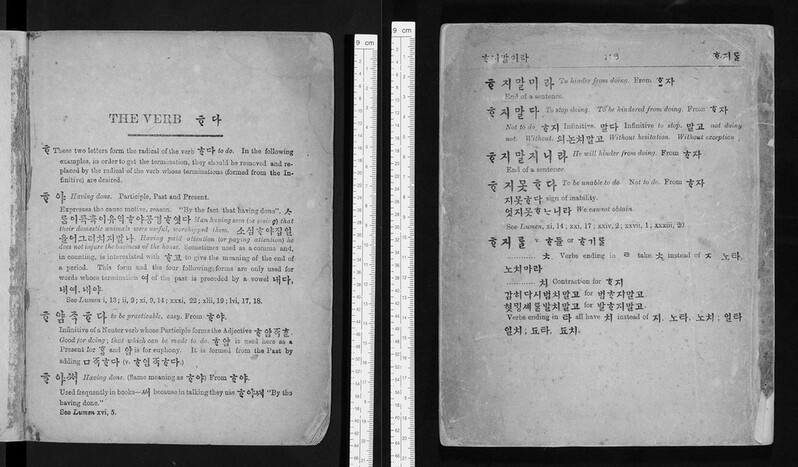 THE VERB ᄒᆞ다
ᄒᆞ These two letters form the radical of the verb ᄒᆞ다 to do. In the following
examples, in order to get the termination, they should be removed and re-
placed by the radical of the verb whose terminations (formed from the In-
finitive) are desired.
ᄒᆞ야 Having done. Participle, Past and Present.
Expresses the cause motive, reason. "By the fact that having done".
Man having seen (or seeing) that
their domestic animals were useful, worshipped them.
Having paid attention (or paying attention) he
does not injure the business of the house. Sometimes used as a comma and,
in counting, is intercalated with ᄒᆞ고 to give the meaning of the end of
a period. This form and the four following forms are only used for
words whose termination 여 of the past is preceded by a vowel 내다,
내여, 내야.
See Lumen i, 13; ii, 9; xi, 9, 14; xxxi, 22; xlii, 19; lvi, 17, 18.
ᄒᆞ얌즉ᄒᆞ다 to be practicable, easy. From ᄒᆞ야.
Infinitive of a Neuter verb whose Participle forms the Adjective ᄒᆞ얌즉ᄒᆞᆫ.
Good for doing; that which can be made to do. ᄒᆞ얌 is used here as a
Present for and is for euphony. It is formed from the Past by
adding ㅁ즉ᄒᆞ다 (v. ᄒᆞ염즉ᄒᆞ다.)
ᄒᆞ야셔 Having done. (Same meaning as ᄒᆞ야) From ᄒᆞ야.
Used frequently in books—셔 because in talking they use ᄒᆞ야셔 "By the
having done."
See Lumen xvi, 5.
ᄒᆞ지말이라
ᄒᆞ지를
ᄒᆞ지말미라 To hinder from doing. From ᄒᆞ자
End of a sentence.
ᄒᆞ지말다 To stop doing. To be hindered from doing. From ᄒᆞ자
Not to do ᄒᆞ지 Infinitive. 말다 Infinitive to stop. 말고 not doing
not. Without. 의논치말고 Without hesitation. Without exception
ᄒᆞ지말지니라 He will hinder from doing. From ᄒᆞ자
End of a sentence.
ᄒᆞ지못ᄒᆞ다 To be unable to do. Not to do. From ᄒᆞ자
지못ᄒᆞ다 sign of inability.
엇지못ᄒᆞᄂᆞ니라 We cannot obtain.
See Lumen, xi, 14; xxi, 17; xxiv, 2; xxvii, 1; xxxiii, 20
ᄒᆞ지를 v. ᄒᆞ들 or ᄒᆞ기를
............ 치 Verbs ending in ㄹ take 치 instead of 지 노타.
노치마라
............ 치 Contraction for ᄒᆞ지
for 범ᄒᆞ지말고
for 발ᄒᆞ지말고.
Verbs ending in 타 all have 치 instead of 지. 노타, 노치; 일타
일치; 됴타, 됴치.